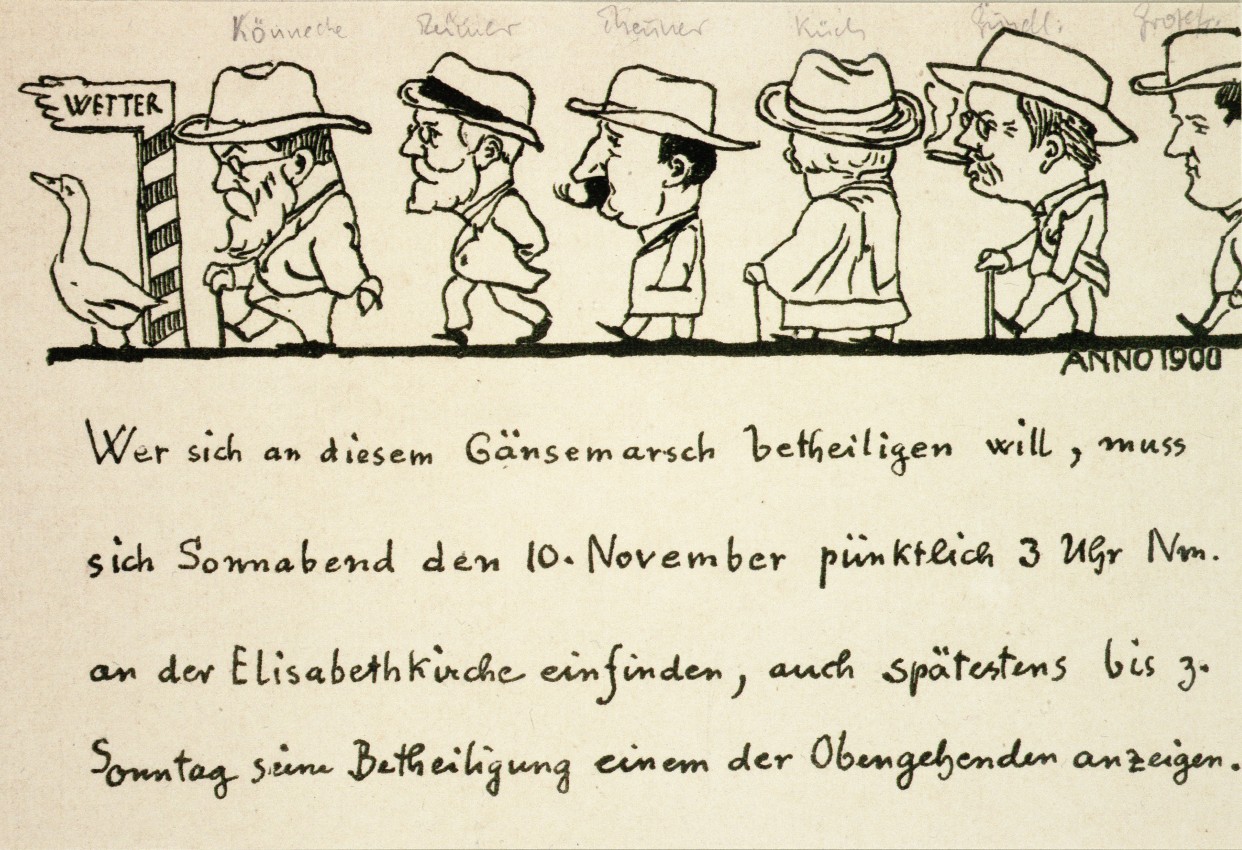 Könnecke Küch
WETTER
ANNO 1900
Wer sich an diesem Gänsemarsch betheiligen will, muss
sich Sonnabend den 10. November pünktlich 3 Uhr Nm.
an der Elisabethkirche einfinden, auch spätestens bis z.
Sonntag seine Betheiligung einem der Obengehenden anzeigen.